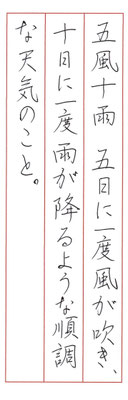 五風十雨　五日に一度風が吹き、
十日に一度雨が降るような順調
な天気のこと。